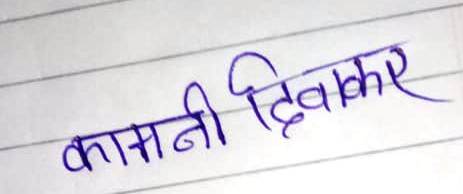 कामनी दिवाकर